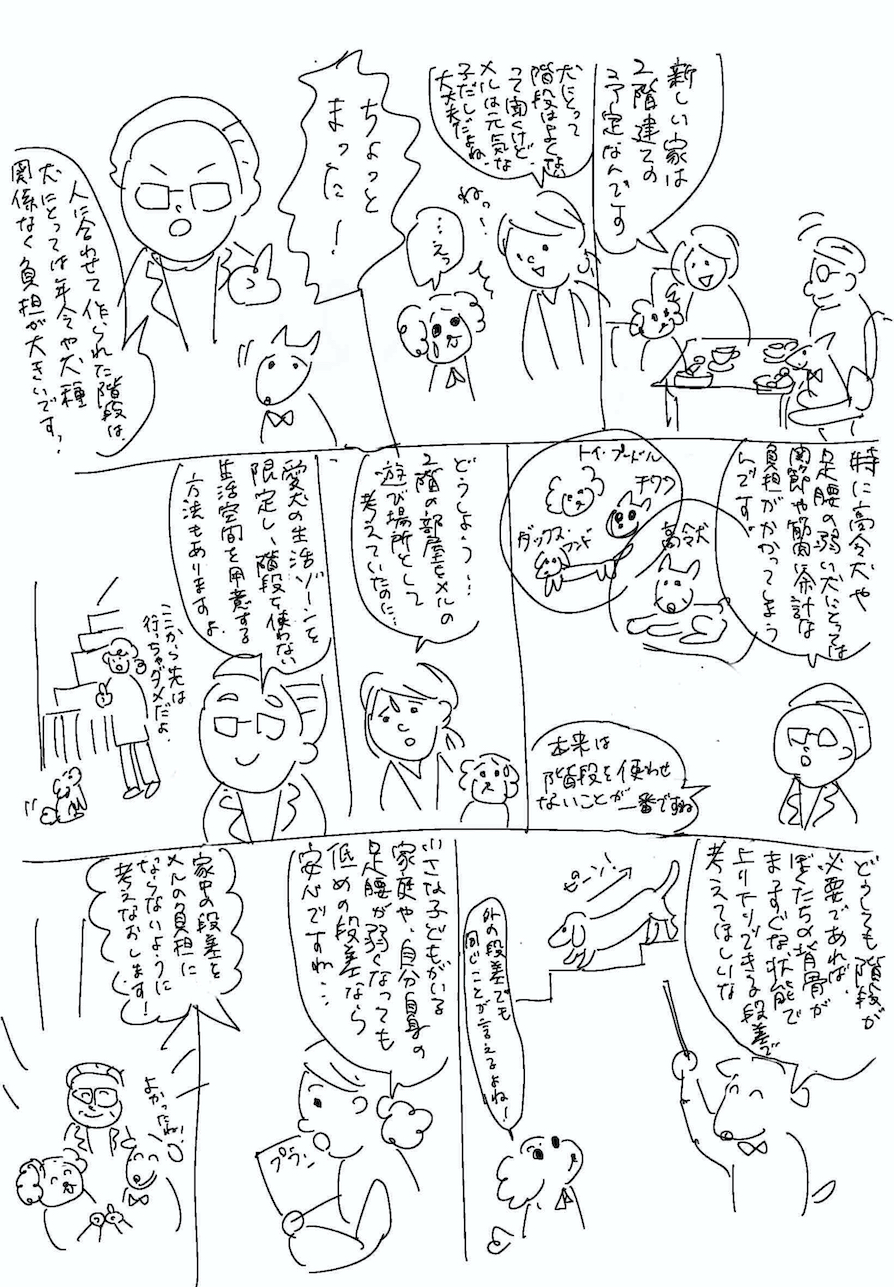 新しい家は
2階建ての
予定なんです
犬にとって
階段はよくない
って聞くけど
メルは元気な
子だし
大丈夫だよね、
ねっ!
…えっ
ちょっと
まった!
人に合わせて作られた階段は、
犬にとっては年令や犬種
関係なく負担が大きいですっ
特に高令犬や
足腰の弱い犬にとっては
関節や筋肉に余計な
負担がかかってしまう
んです。
トイ・プードル
チワワ
ダックス・
フンド
高令犬
本来は
階段を使わせ
ないことが一番ですね
どうしよう…
2階の部屋をメルの
遊び場所として
考えていたのに…
愛犬の生活ゾーンを
限定し、階段を使わない
生活空間を用意する
方法もありますよ
ここから先は
行っちゃダメだよ
どうしても階段が
必要であれば、
ぼくたちの背骨が
まっすぐな状態で
上り下りできる段差で
考えてほしいな
外の段差でも
同じことが言えるよね!
小さな子どもがいる
家庭や、自分自身の
足腰が弱くなっても
低めの段差なら
安心ですね…
プラン
家中の段差を
メルの負担に
ならないように
考えなおします!
よかったね!